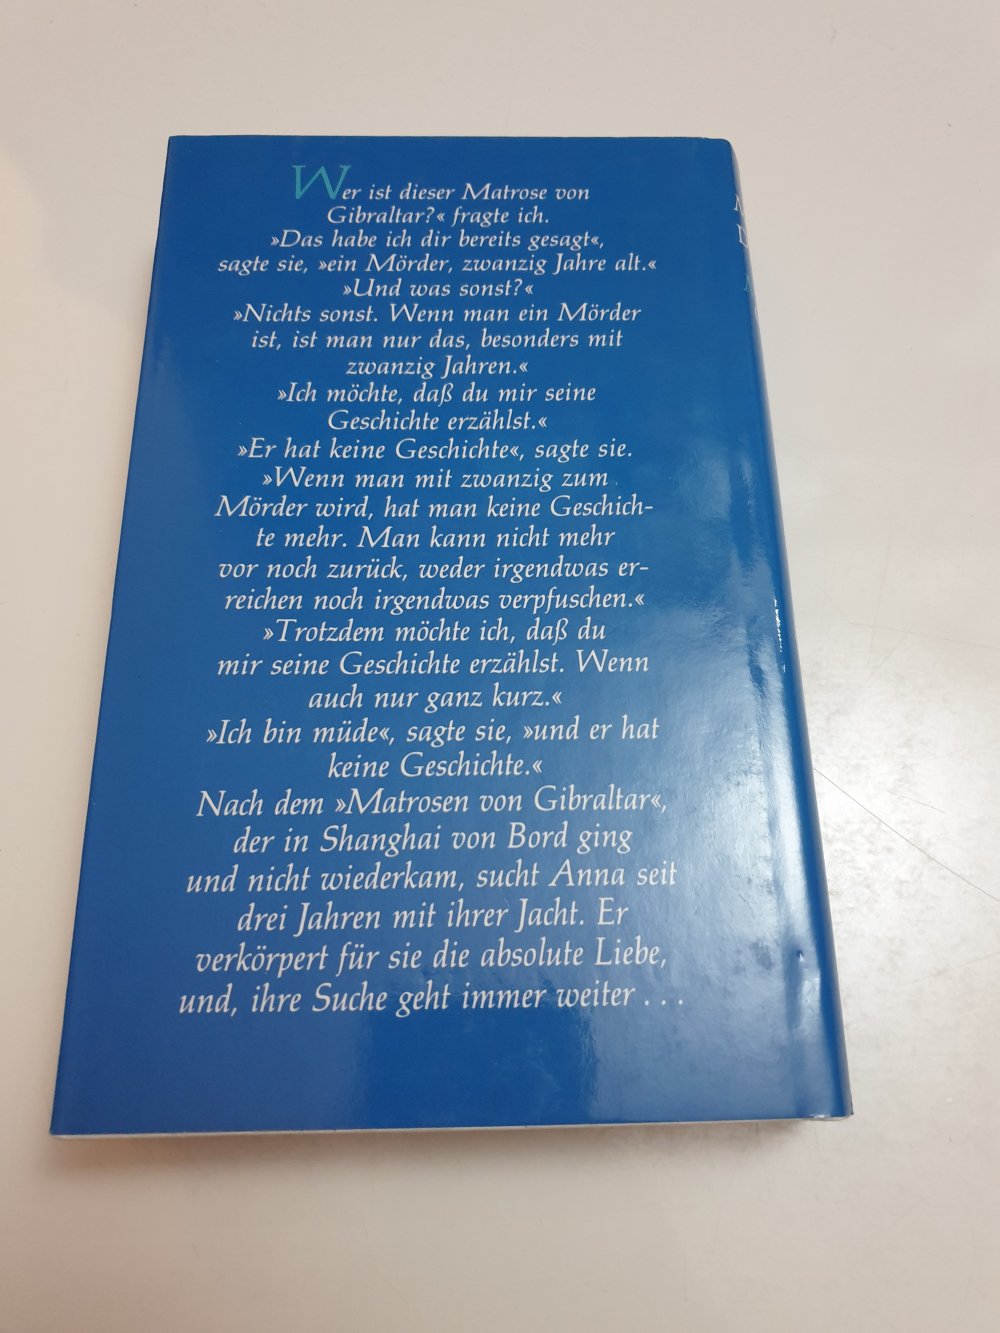 Wer ist dieser Matrose von
Gibraltar?« fragte ich.
»Das habe ich dir bereits gesagt«,
sagte sie, »ein Mörder, zwanzig Jahre alt.«
»Und was sonst?«
»Nichts sonst. Wenn man ein Mörder
ist, ist man nur das, besonders mit
zwanzig Jahren.«
»Ich möchte, daß du mir seine
Geschichte erzählst.«
»Er hat keine Geschichte«, sagte sie.
»Wenn man mit zwanzig zum
Mörder wird, hat man keine Geschich-
te mehr. Man kann nicht mehr
vor noch zurück, weder irgendwas er-
reichen noch irgendwas verpfuschen.«
»Trotzdem möchte ich, daß du
mir seine Geschichte erzählst. Wenn
auch nur ganz kurz.«
»Ich bin müde«, sagte sie, »und er hat
keine Geschichte.«
Nach dem »Matrosen von Gibraltar«,
der in Shanghai von Bord ging
und nicht wiederkam, sucht Anna seit
drei Jahren mit ihrer Jacht. Er
verkörpert für sie die absolute Liebe,
und, ihre Suche geht immer weiter . . .